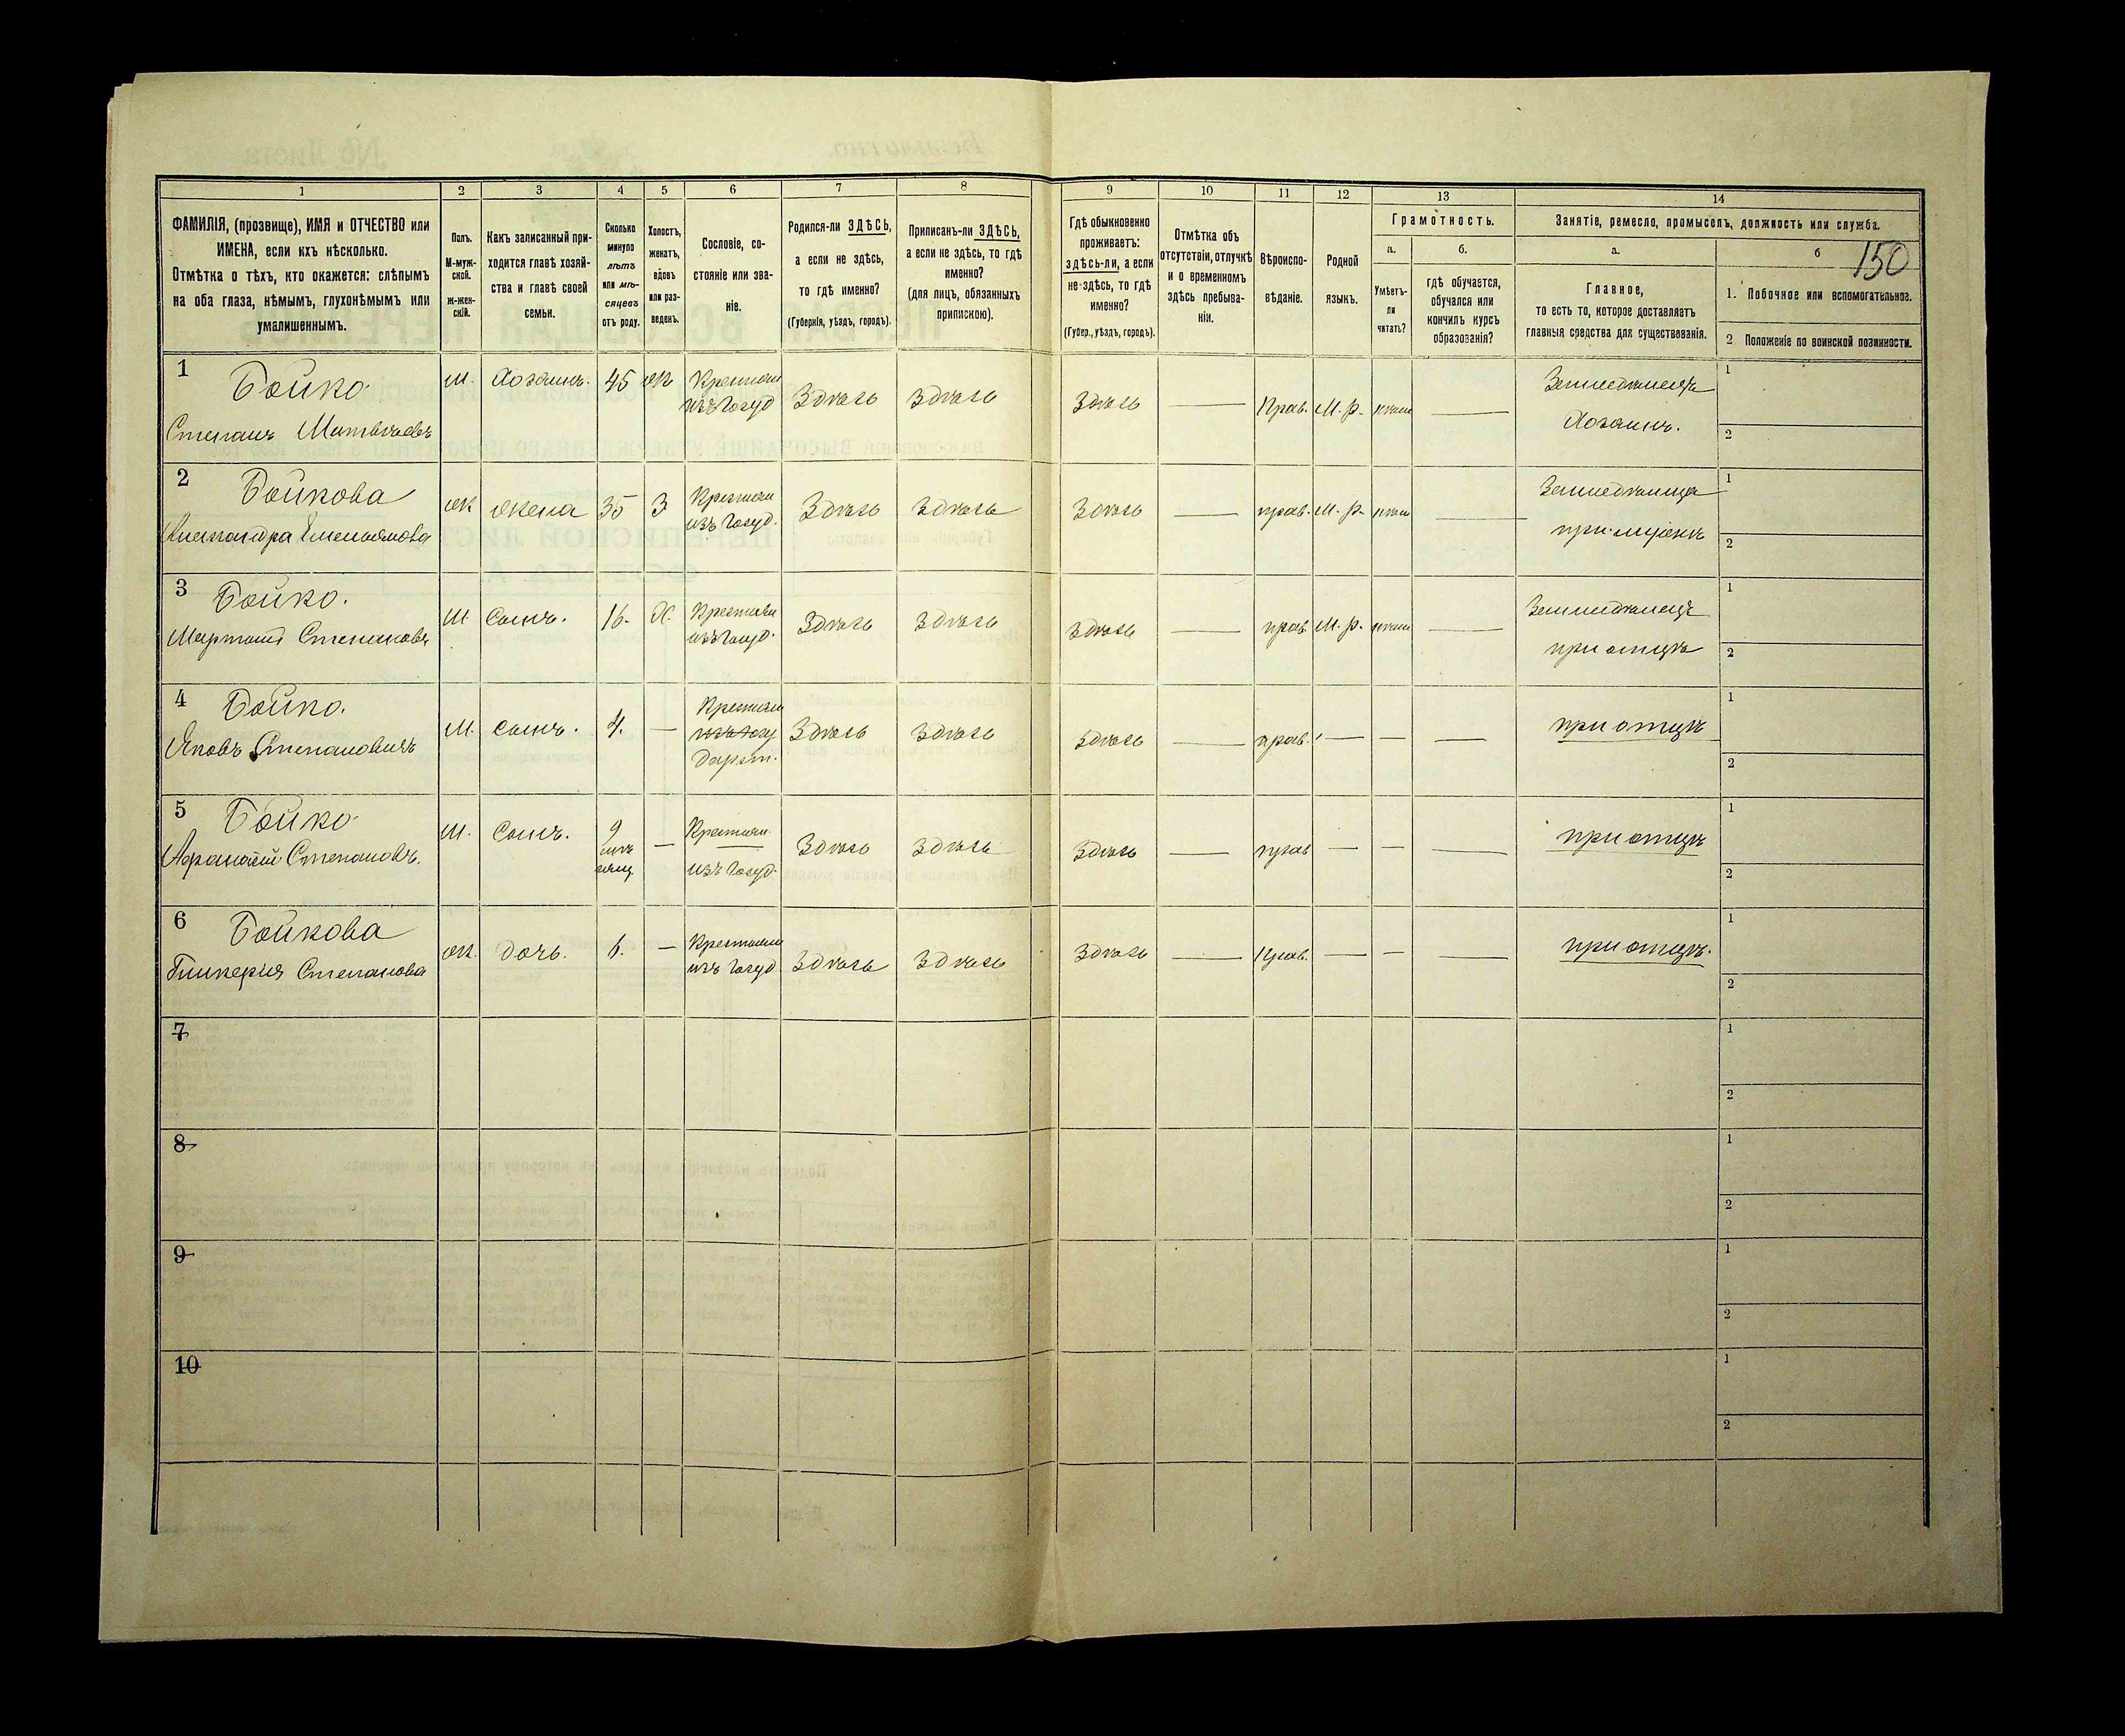 1 2 3 4 5 6 7 8 9 10 11 12 13 14
ФАМИЛІЯ, (прозвище), ИМЯ и ОТЧЕСТВО или
ИМЕНА, если ихъ нѣсколько.
Отмѣтка о тѣхъ, кто окажется: слѣпымъ
на оба глаза, нѣмымъ, глухонѣмымъ или
умалишеннымъ.
Полъ.
М-муж-
ской.
ж-жен-
скій.
Какъ записанный при-
ходится главѣ хозяй-
ства и главѣ своей
семьи.
Сколько
минуло
лѣтъ
или мѣ-
сяцевъ
отъ роду.
Холостъ,
женатъ,
вдовъ
или раз-
веденъ.
Сословіе, со-
стояніе или зва-
ніе.
Родился-ли ЗДѢСЬ,
а если не здѣсь,
то гдѣ именно?
(Губернія, уѣздъ, городъ).
Приписанъ-ли ЗДѢСЬ,
а если не здѣсь, то гдѣ
именно?
(для лицъ, обязанныхъ
припискою).
Гдѣ обыкновенно
проживаетъ:
здѣсь-ли, а если
не здѣсь, то гдѣ
именно?
(Губер., уѣздъ, городъ).
Отмѣтка объ
отсутствіи, отлучкѣ
и о временномъ
здѣсь пребыва-
ніи.
Вѣроиспо-
вѣданіе.
Родной
языкъ.
Грамотность.
а.
Умѣетъ-
ли
читать?
б.
гдѣ обучается,
обучался или
кончилъ курсъ
образованія?
Занятіе, ремесло, промыселъ, должность или служба.
а.
Главное,
то есть то, которое доставляетъ
главныя средства для существованія.
б
150
1. Побочное или вспомогательное.
2 Положеніе по воинской повинности.
1 Бойко
Степанъ Матвѣевъ
М. Хозяинъ. 45 Ж Крестьян
изъ Госуд Здѣсь Здѣсь Здѣсь Прав. М. р. Земледѣлецъ
Хозяинъ.
1
2
2 Бойкова
Александра Емельянова
Ж Жена 35 З Крестьян
изъ Госуд. Здѣсь Здѣсь Здѣсь прав. М. р. Земледѣлица
при мужѣ
1
2
3 Бойко.
Мартинъ Степановъ
М. Сынъ. 16. Х. Крестьян
изъ Госуд. Здѣсь Здѣсь Здѣсь прав. М. р. Земледѣлецъ
при отцѣ
1
2
4 Бойко.
Яковъ Степановичъ
М. Сынъ. 4. Крестьян
изъ Госу
дарст. Здѣсь Здѣсь Здѣсь прав. при отцѣ
1
2
5 Бойко
Афанасій Степановъ.
М. Сынъ. 9
Крестьян.
изъ Госуд. Здѣсь Здѣсь Здѣсь прав при отцѣ
1
2
6 Бойкова
Гликерия Степанова
Ж. Дочь. 6. Крестьян
изъ Госуд Здѣсь Здѣсь Здѣсь Прав. при отцѣ.
1
2
7
1
2
8
1
2
9
1
2
10
1
2